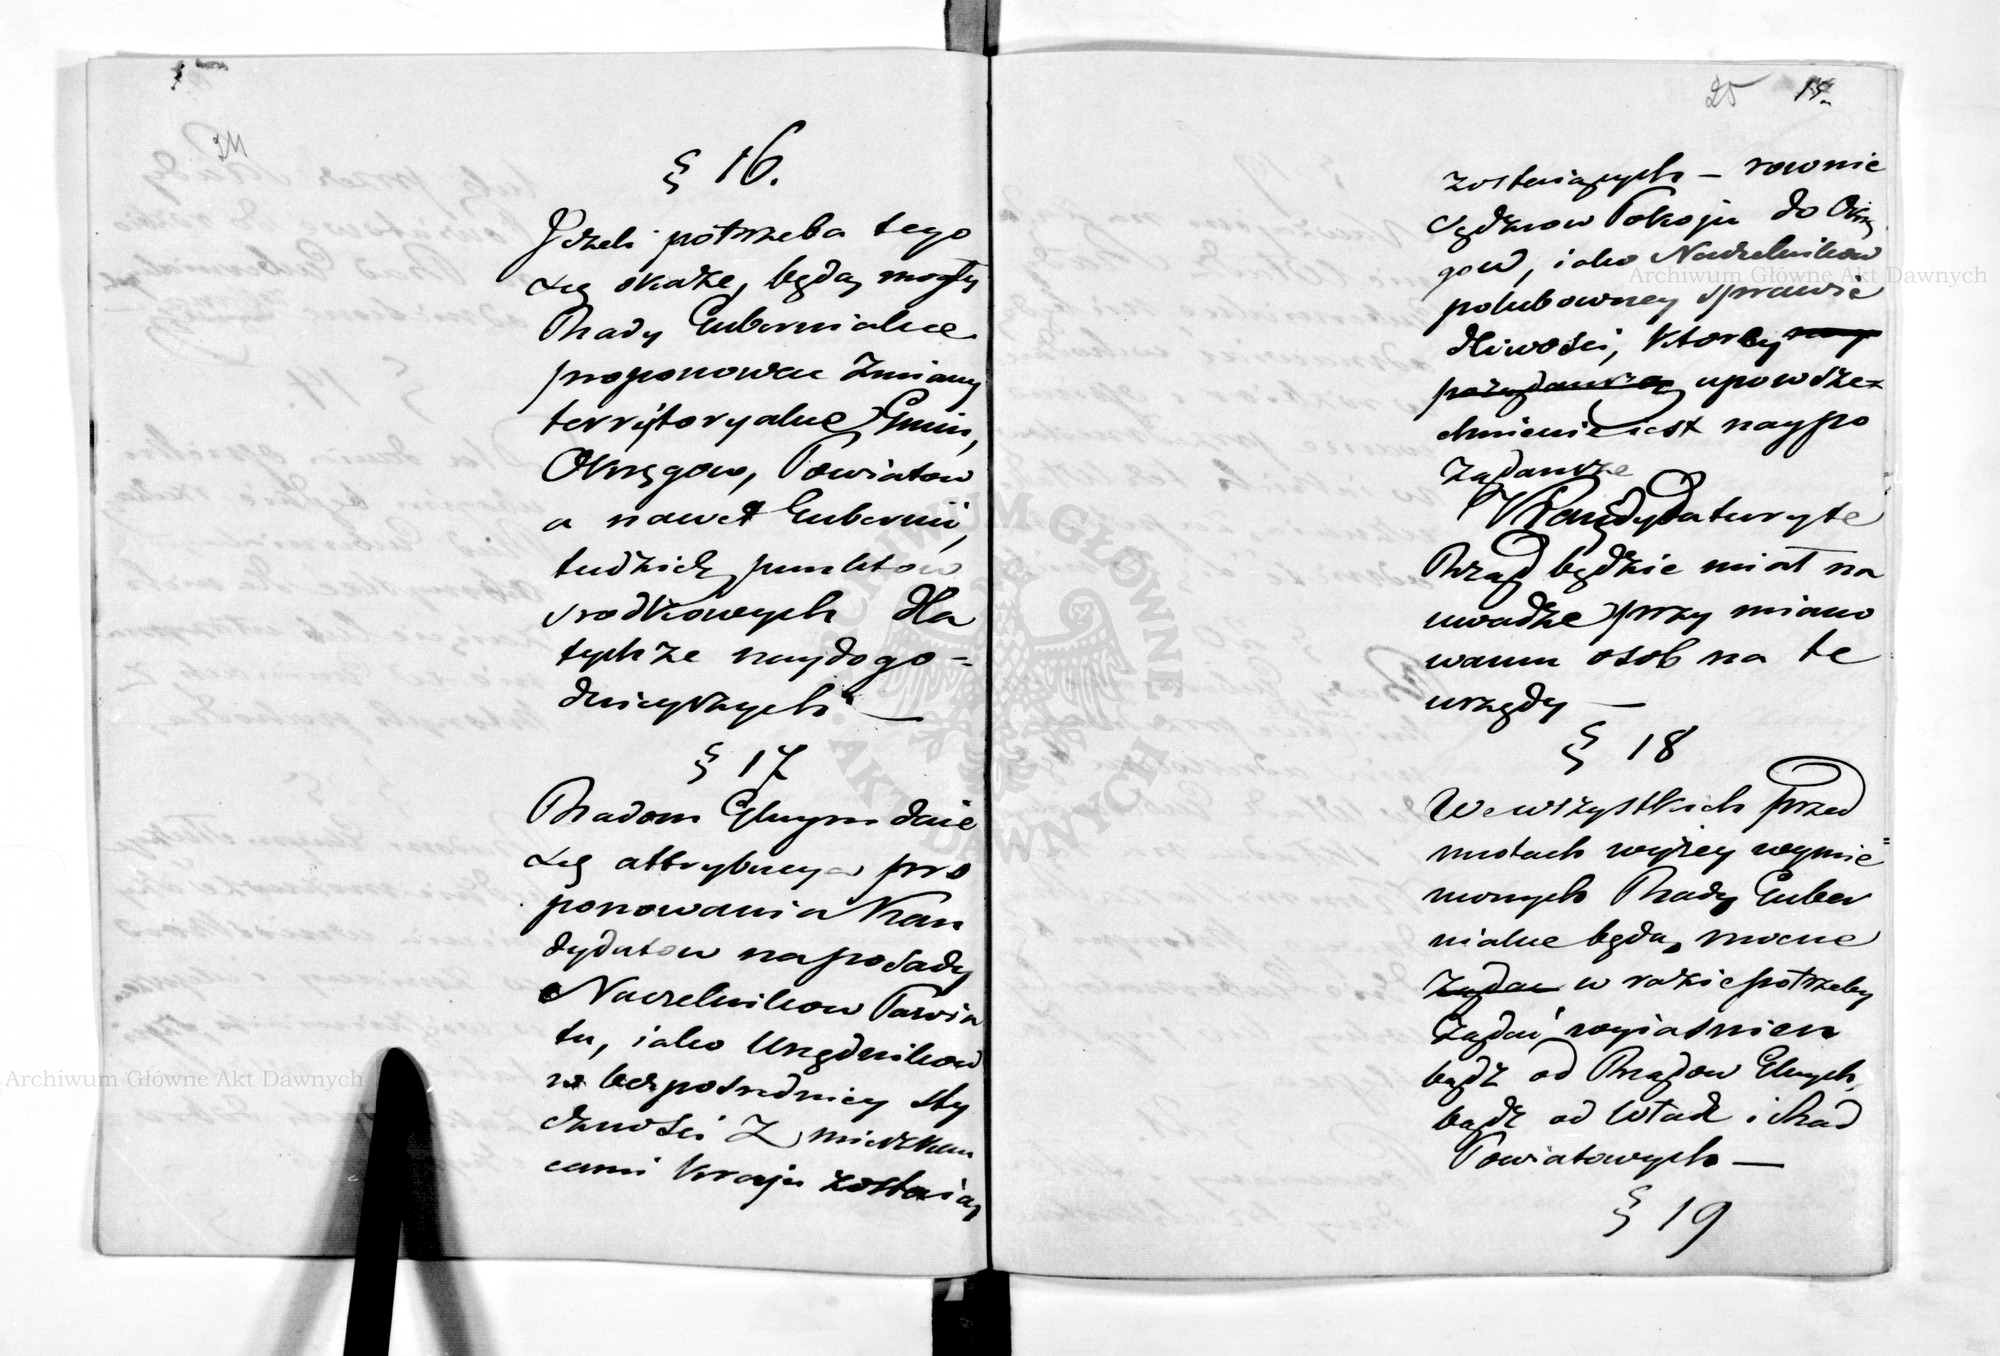 24
§ 16.
Jeżeli potrzeba tego
się okaże, będą mogły
Rady Gubernialne
proponować zmiany
terrytoryalne Gmin,
Okręgow, Powiatow
a nawet Gubernii,
tudzież punktow
srodkowych dla
tychże naydogo-
dnieyszych —
§ 17
Radom Głnym daie
się attrybucya pro
ponowania Kan
dydatow na posady
Naczelnikow Powia
tu, iako Urzędnikow
w bezposredniey sty
czności z mieszkan
cami Kraju zostaią
25 15.
zostaiących — rownie
Sędziow Pokoju do Okrę
gow, iako Naczelnikow
polubowney sprawie
dliwości, ktorey nay
pożądańsze upowsze-
chnienie iest naypo
żądańsze
Kandydatury te
Rząd będzie miał na
uwadze przy miano
waniu osob na te
urzędy —
§ 18
We wszystkich przed
miotach wyżey wymie=
nionych Rady Guber
nialne będą mocne
żądać w razie potrzeby
żądać wyiaśnień
bądź od Rządow Głnych,
bądź od Władz i Rad
Powiatowych —
§ 19
Archiwum Główne Akt Dawnych
Archiwum Główne Akt Dawnych
ARCHIWUM GŁÓWNE AKT DAWNYCH